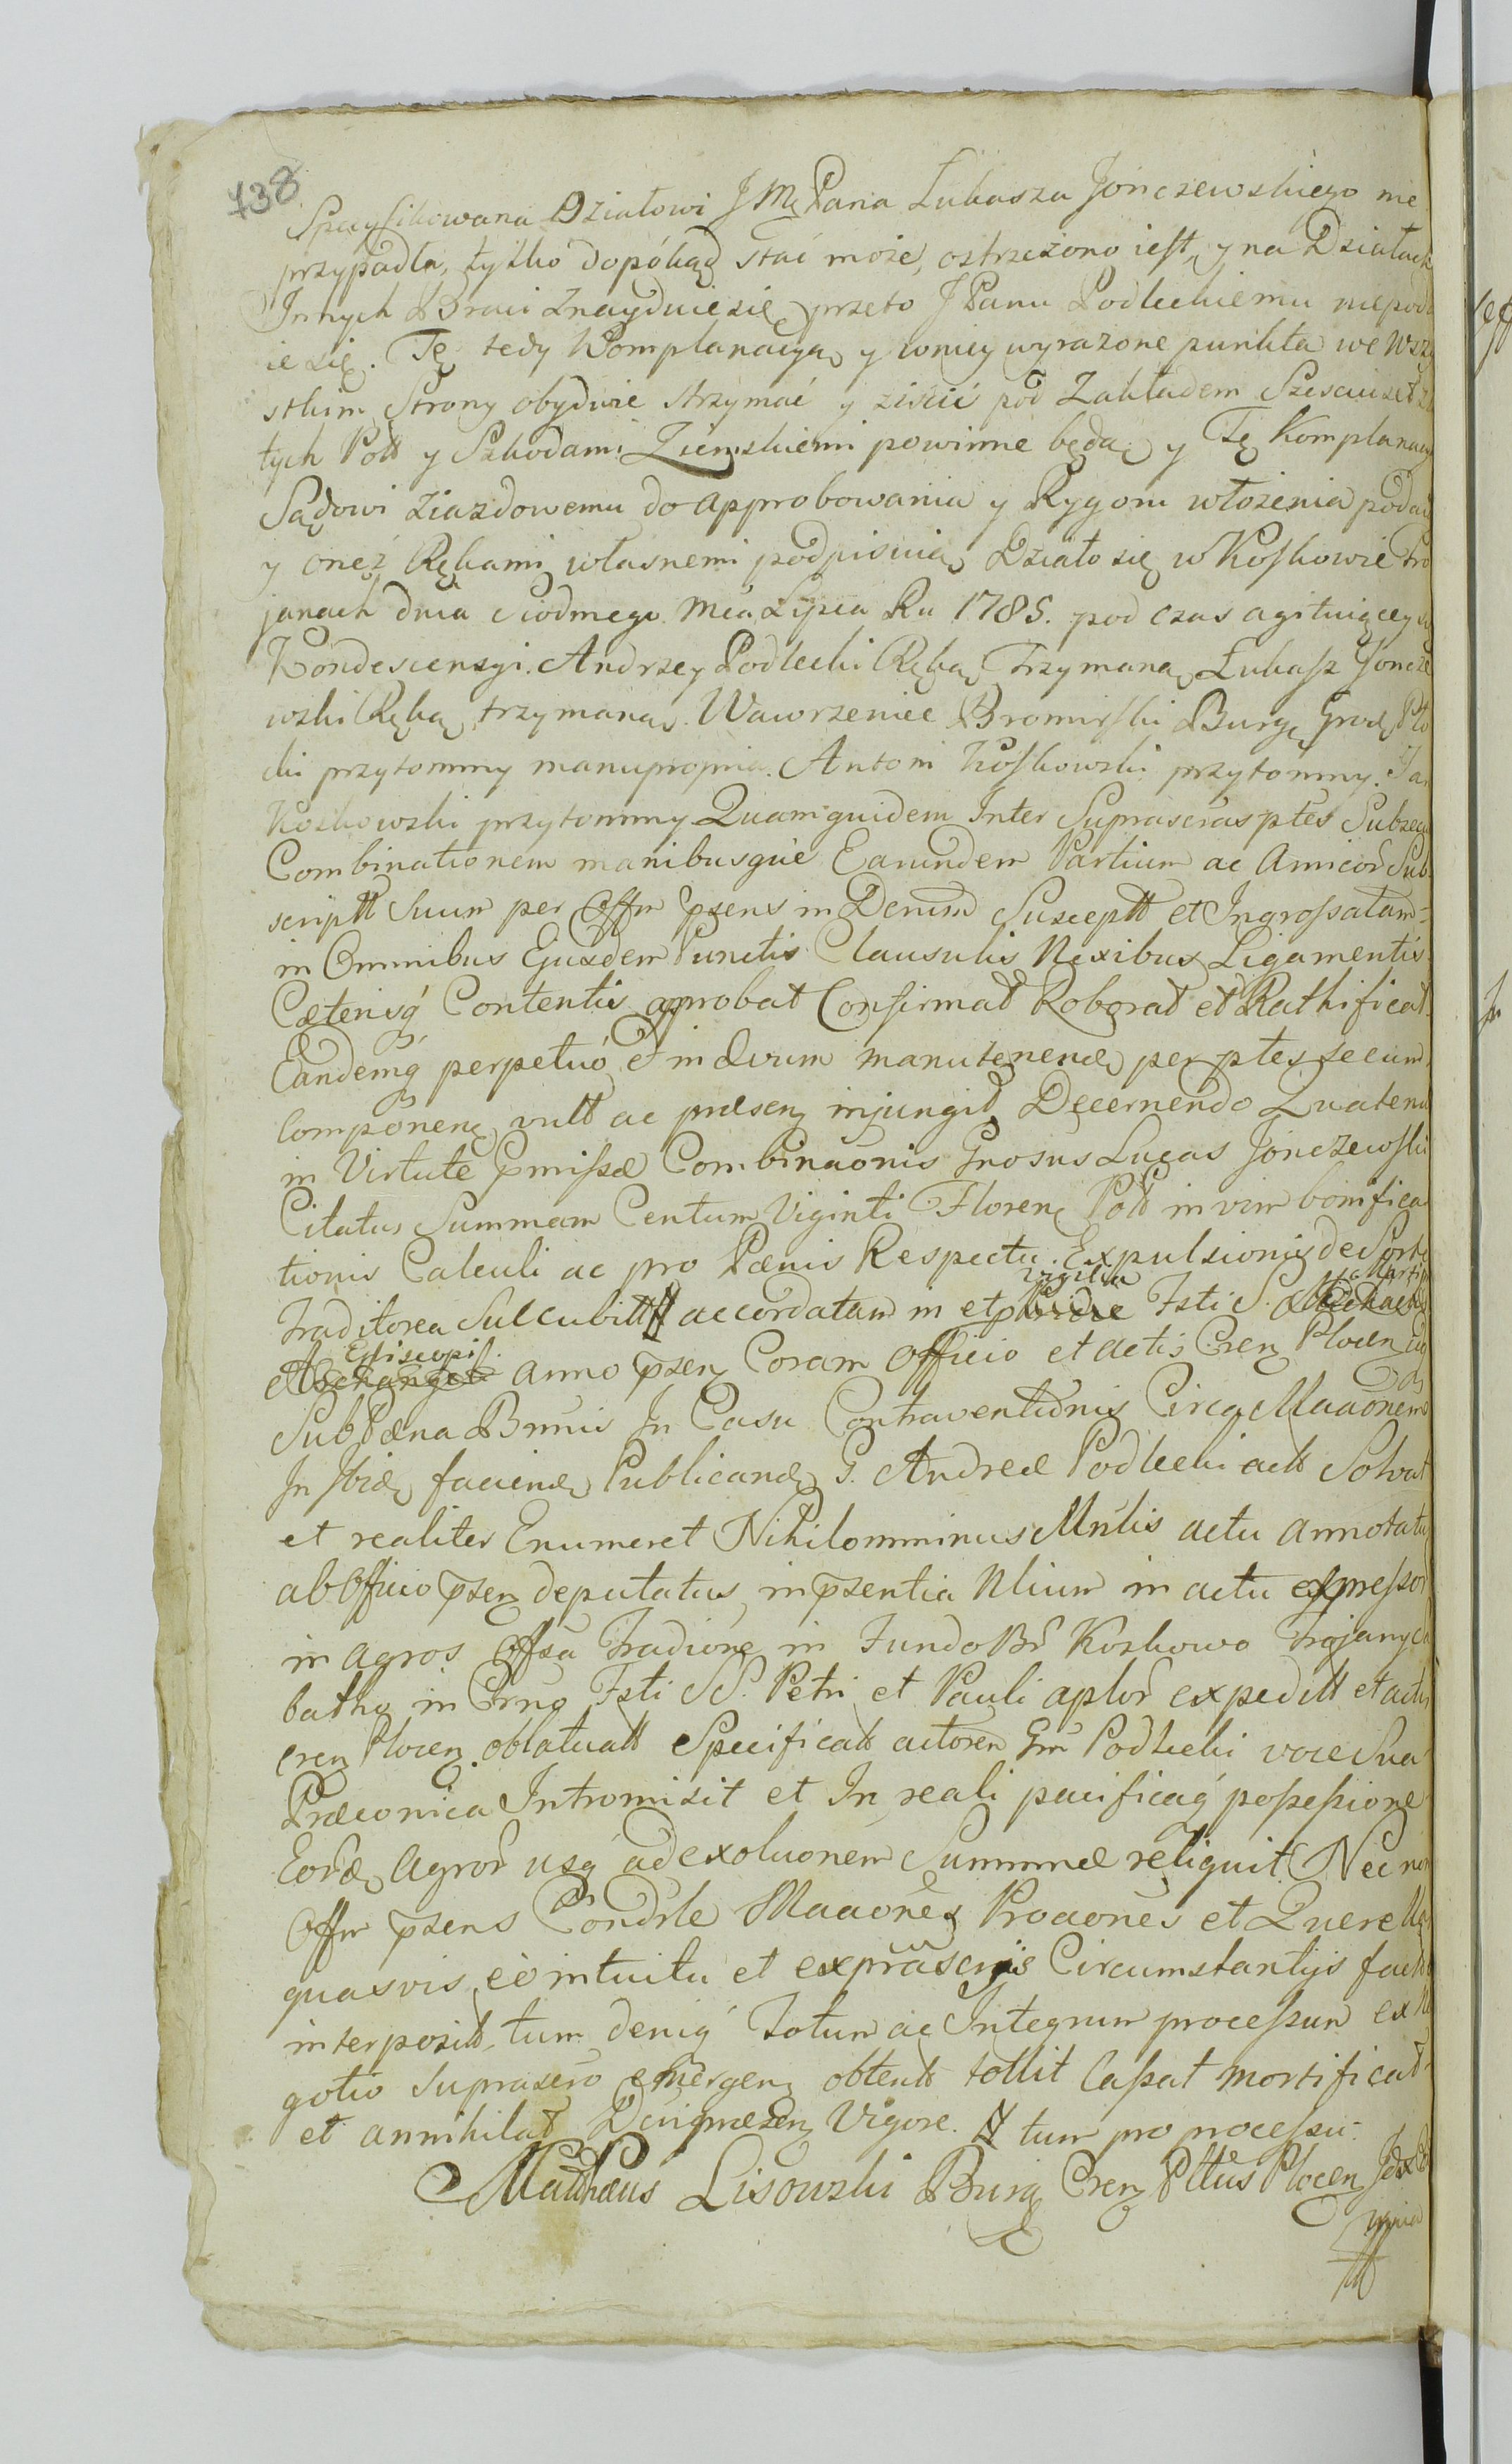 738
Specyfikowana Działowi JMę Pana Lukasza Jonczewskiego nie
przypadła, tylko dopókąd stać może, ostrzeżono iest, y na Działach
Innych Braci znayduie się, przeto J Panu Podleckiemu niepoda
ie się. Tę tedy Komplanacyą y wniey wyrażone punkta we wszy
stkim Strony obydwie strzymać y ziścić pod Zakładem Sześciuset zł
tych Poll y Szkodami Ziemskiemi powinne będą, y Tę Komplanacy
Sądowi ziazdowemu do approbowania y Rygoru włożenia podad
y oneż Rękami własnemi podpisuią, Działo się w Koskowie Tro
janach dnia siodmego Mca Lipca Ru 1785. pod czas agituiącey się
Kondescensyi. Andrzey Podlecki Ręką Trzymaną, Lukasz Joncze
wski Ręką trzymaną. Wawrzeniec Bromirski Burg Grodz Pło
cki przytomny manupropria. Antoni Koskowski przytomny. Ja
Koskowski przytomny Quamquidem Inter Suprascras ptes Subseq
Combinationem manibusque Earundem Partium ac Amicor Sub
scriptt Suum per Offm psens in Demud Susceptt et Ingrossatam
in Omnibus Ejusdem Punctis Clausulis Nexibus Ligamentis
Cæterisq Contentis approbat Confirmat Roborat et Rathificat
Eandemq perpetuó et in ævum manutenend per ptes secum
Componen, vult ac præsen injungit, Decernendo Quatenu
in Virtute Pmissæ Combinaonis Gnosus Lucas Jonczewski
Citatus Summam Centum Viginti Floren Poll in vim bonifica
tionis Calculi ac pro Pænis Respectu Expulsionis de Sorte
Traditorea Succubitt accordatam in et vigilia Fsti S. Martini
Episcopi anno psen Coram Officio et actis Cren Plocen
Sub Pæna Bnnis In Casu Contraventionis Circa Maaonem
In Fbid faciend Publicand G. Andreæ Podlecki actt Solvat
et realiter Enumeret Nihilomminus Mnlis actu annotatu
ab Officio psen deputatus, in psentia Nlium in actu expressor
in agros Offsa Tradione in Fundo Br Koskowo Trojany
batho in Crno Fsti SS. Petri et Pauli aplor expeditt et actis
cren Plocen oblatuatt Specificatt actorem Gm Podlecki voce Sua
Præconica Intromisit et In reali pacificaq possessione
Eord Agror usq ad exoluonem Summæ reliquit Nec non
Offm psens Condrle Maaones Proaones et Querellas
quasvis eo intuitu et exprascris Circumstantijs factt
interposit, tum deniq Totum ac Integrum processum ex Ne
gotio suprascro emergen obtentt tollit Cassat mortificat
et annihilat Dcriq præsen Vigore. tum pro processu
Mathæus Lisowski Burg Cren Pltus Plocen Jdx